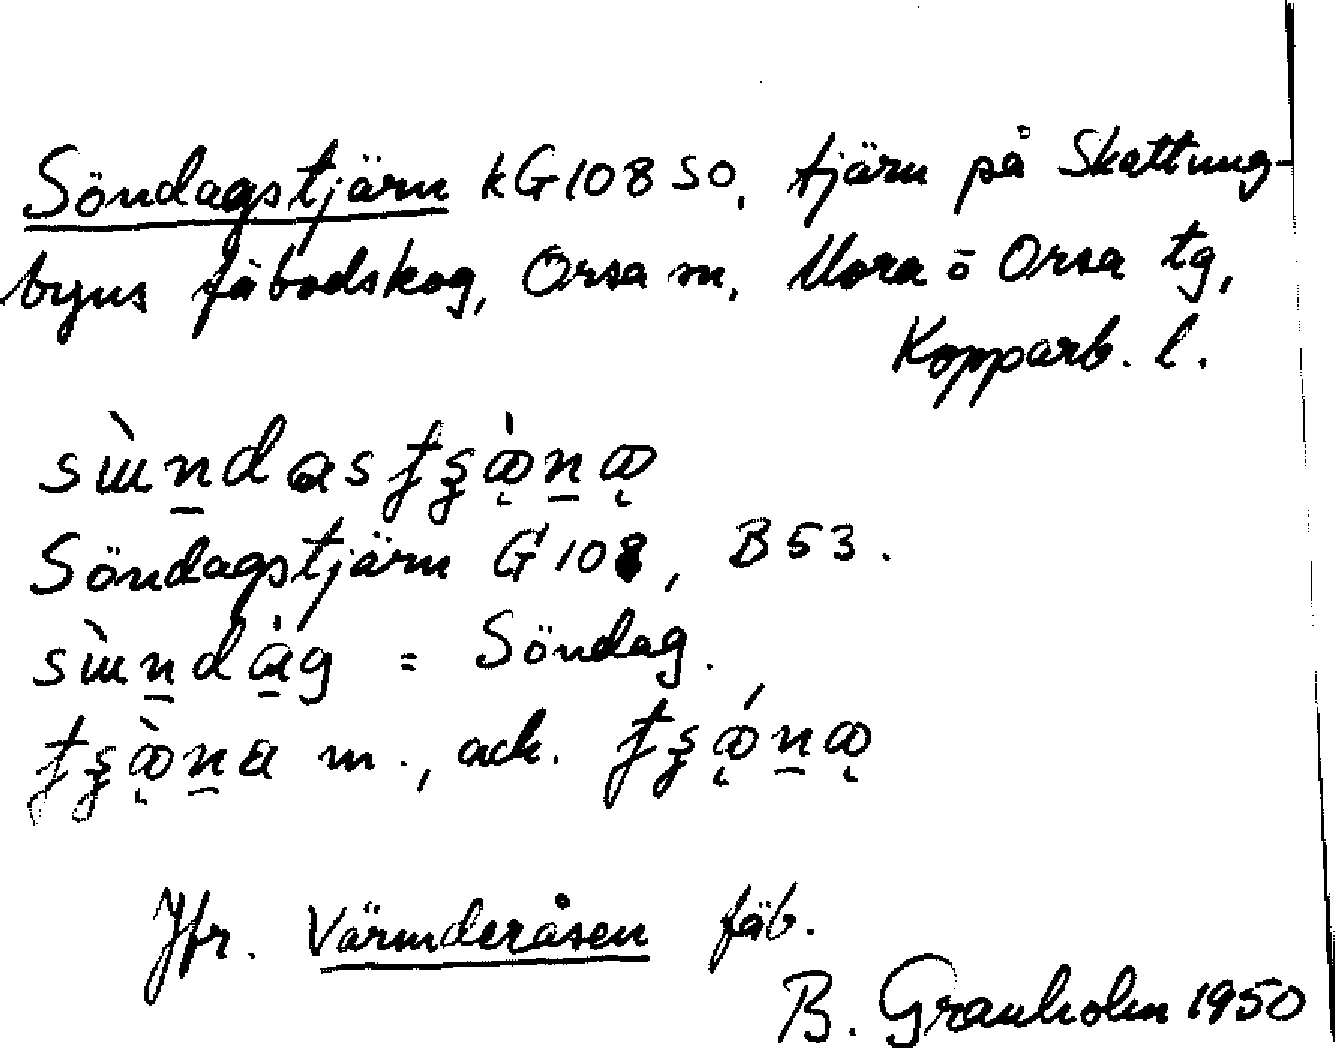 Söndagstjärn kG108 SO, tjärn på Skattung-
byns fäbodskog, Orsa m, Mora o Orsa tg,
Kopparb. l.
Söndagstjärn G108, B53.
= Söndag.
m., ack.
Jfr. Värmderåsen fäb.
B. Granholm 1950